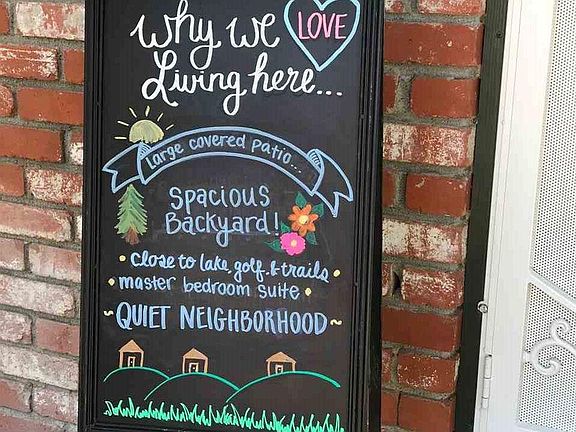 why we LOVE
Living here...
Large covered patio...
Spacious
Backyard!
• close to lake, golf, & trails •
• master bedroom suite •
~QUIET NEIGHBORHOOD~